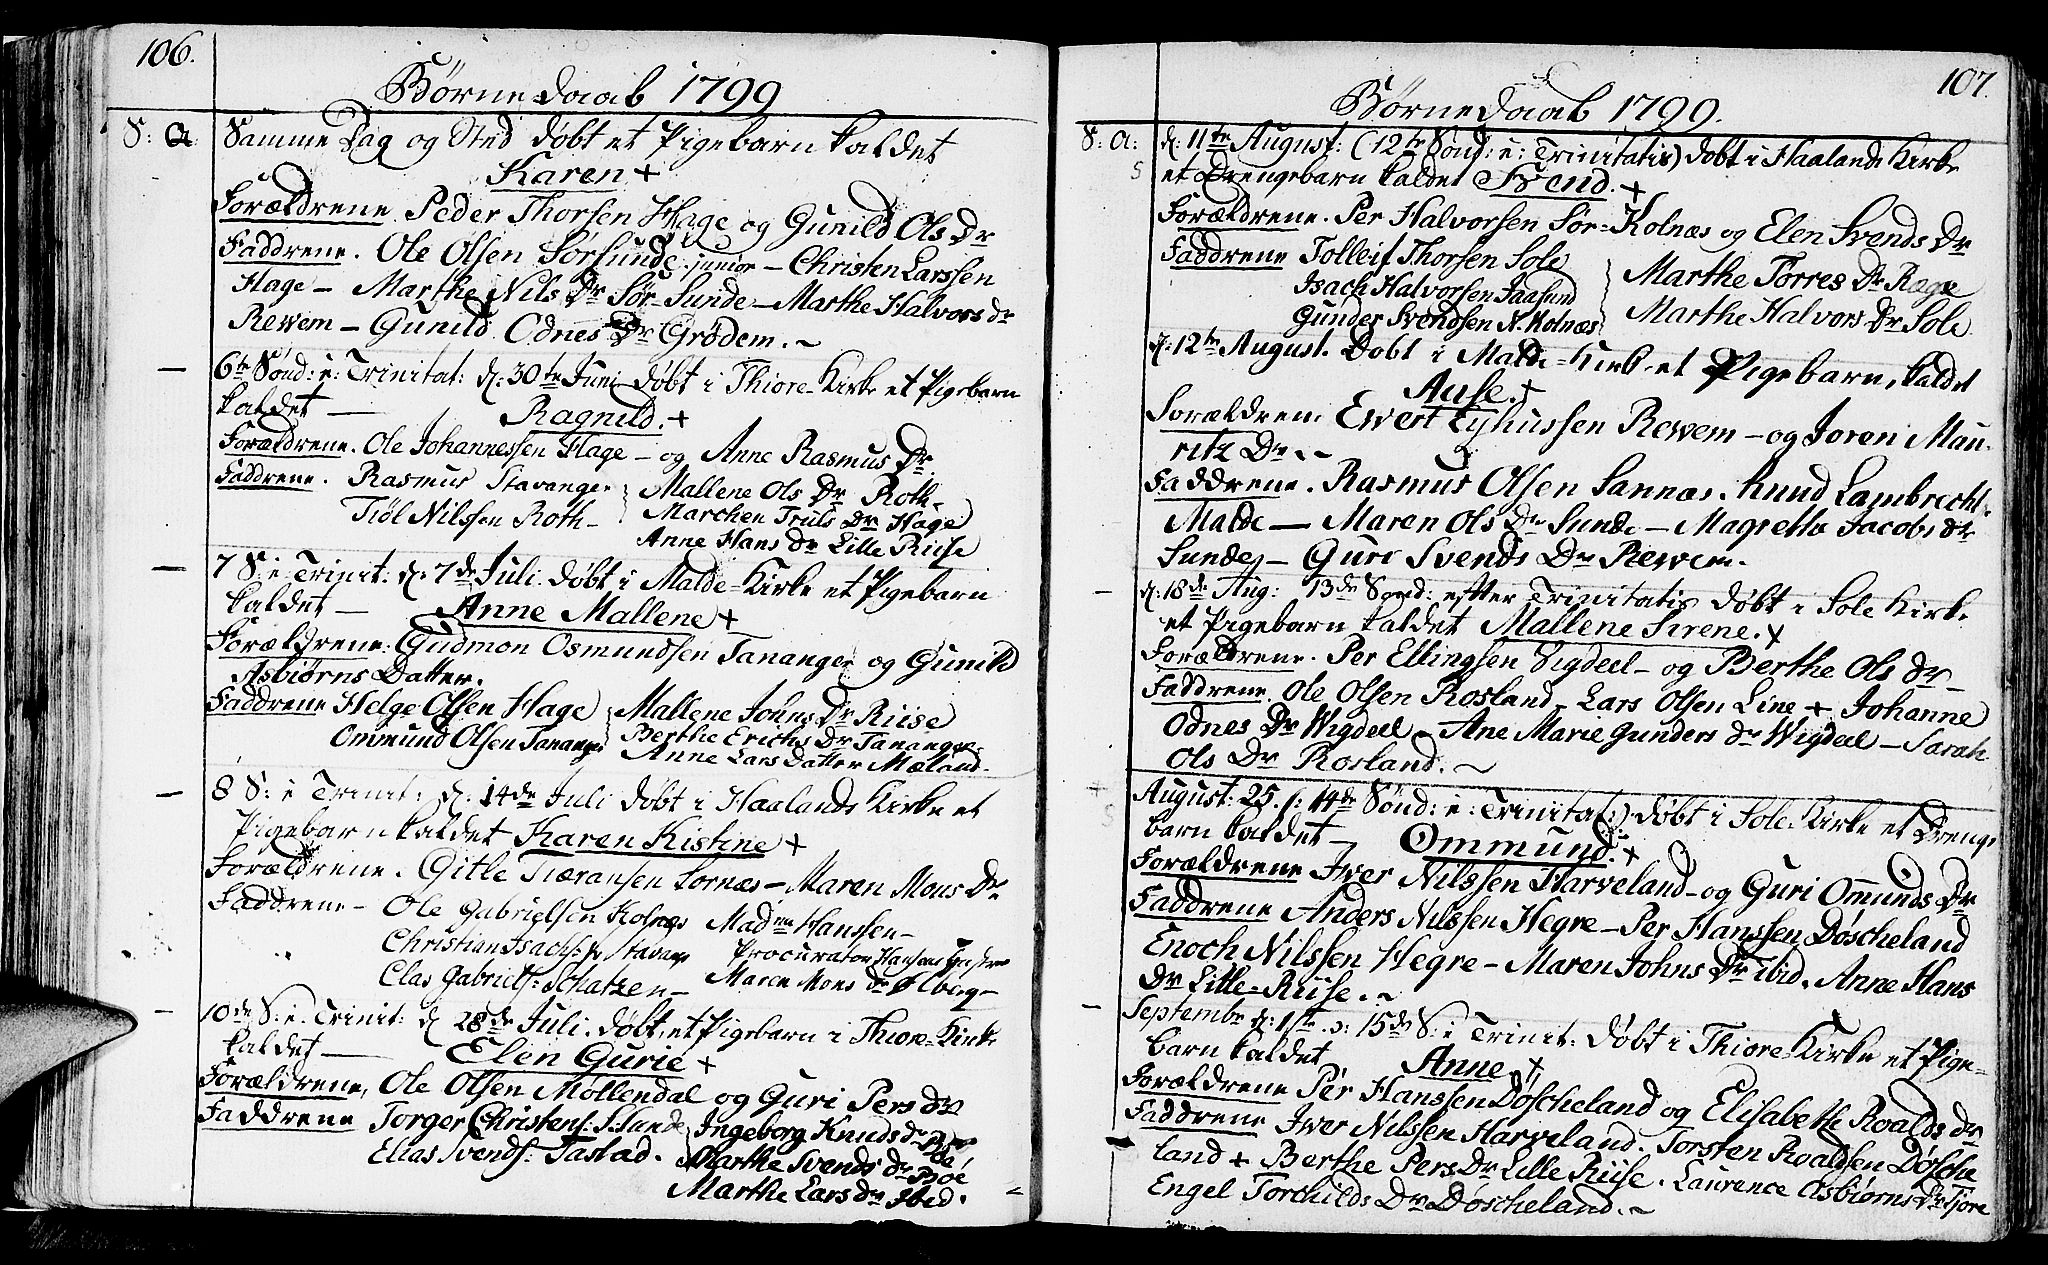 106.
Børne Daab 1799
S: a: Samme Dag og Sted døbt et Pigebarn kaldet
Karen +
Forældrene Peder Thorsen Hage og Gunild Ols Dr
Faddrene. Ole Olsen Sørsunde junior – Christen Larssen
Hage – Marthe Nils Dr Sør Sunde – Marthe Halvors dr
Rewem – Gunild Odnes Dr Grødem. ~
– 6te Sønd: e: Trinitat: d: 30te Juni døbt i Thiore-Kirke et Pigebarn
kaldet — Ragnild. +
Forældrene. Ole Johannessen Hage – og Anne Rasmus Dr.
Faddrene. Rasmus Stavanger Mallene Ols Dr Roth-
Tiøl Nilssen Roth- Marchen Truls Dr Hage
Anne Hans dr Lille Riise
– 7 S: e: Trinit: d. 7de Juli døbt i Malde-Kirke et Pigebarn
kaldet — Anne Mallene +
Forældrene: Gudmon Osmundsen Tananger og Gunild
Asbiørns Datter.
Faddrene Helge Olsen Hage Mallene Jonns Dr Riise
Ommund Olsen Tananger Berthe Erichs Dr Tananger
Anne Lars Datter Mæland.
– 8 S: e Trinit: d. 14de Juli døbt i Haalands Kirke et
Pigebarn kaldet Karen Kistine +
Forældrene. Gitle Tiæransen Sornæs – Maren Mons Dr
Faddrene – Ole Gabrielsen Kolnæs Madme Hanssen –
Christian Isachs: Stavange Procurator Hansens
Clas Gabriels: Schatzen – Maren Mons dr Ølberg –
– 10de S: e: Trinit: d. 28de Juli. døbt et Pigebarn i Thiore-Kirke
kaldet — Elen Gurie +
Forældrene, Ole Olsen Møllendal og Guri Pers dr
Faddrene Torger Christens: Sande Ingeborg Knuds dr Bøe
Elias Svends: Tastad. Marthe Svends dr Bøe
Marthe Lars dr Ibid.
107.
Børne Daab 1799.
S: a: d. 11te August: (12te Sønd: e: Trinitatis) døbt i Haalands Kirke
5 et Drengebarn kaldet Svend. +
Forældrene. Per Halvorsen Sør-Kolnæs og Elen Svends Dr
Faddrene Tolleif Thorsen Sole Marthe Torres Dr Ræge
Isach Halvorsen Jaasund Marthe Halvors Dr Sole
Gunder Svendsen N. Kolnæs
d. 12te August. Døbt i Malde-Kirke et Pigebarn, kaldet
Aase. +
Forældrene Ewert Eyhussen Rewem – og Joren Mau-
ritz Dr. ~
Faddrene. Rasmus Olsen Sannæs. Knud Lambrecht.
Malde — Maren Ols Dr Sunde – Magrethe Jacobs dr
Sunde – Guri Svends Dr Rewem.
– d. 18de Aug: 13de Sønd: efter Trinitatis døbt i Sole Kirke
et Pigebarn kaldet Mallene Sirene. +
Forældrene. Per Ellingsen Vigdeel – og Berthe Ols dr –
Faddrene. Ole Olsen Rosland, Lars Olsen Line + Johanne
Odnes Dr Wigdeel – Ane Marie Gunders dr Wigdeel – Sarah
Ols Dr Rosland. ~
5 August: 25. (: 14de Sønd: e: Trinitat:) døbt i Sole-Kirke et Drenge
barn kaldet – Ommund. +
Forældrene Iver Nilssen Harveland – og Guri Omunds Dr
Faddrene Anders Nilssen Hegre – Per Hanssen Døscheland
Enoch Nilssen Hegre – Maren Johns Dr Ibid. Anne Hans
Dr Lille-Riise. ~
– Septembr d: 1ste o: 15de S: e Trinit: Døbt i Thiore-Kirke et Pige-
barn kaldet Anne. +
Forældrene Per Hanssen Døscheland og Elisabeth Roalds dr
Faddrene Iver Nilssen Harveland. Torsten Roaldsen Døsche
land + Berthe Pers Dr Lille Riise. Laurence Asbiørns Dr Tjore
Engel Torchilds Dr Døscheland. ~